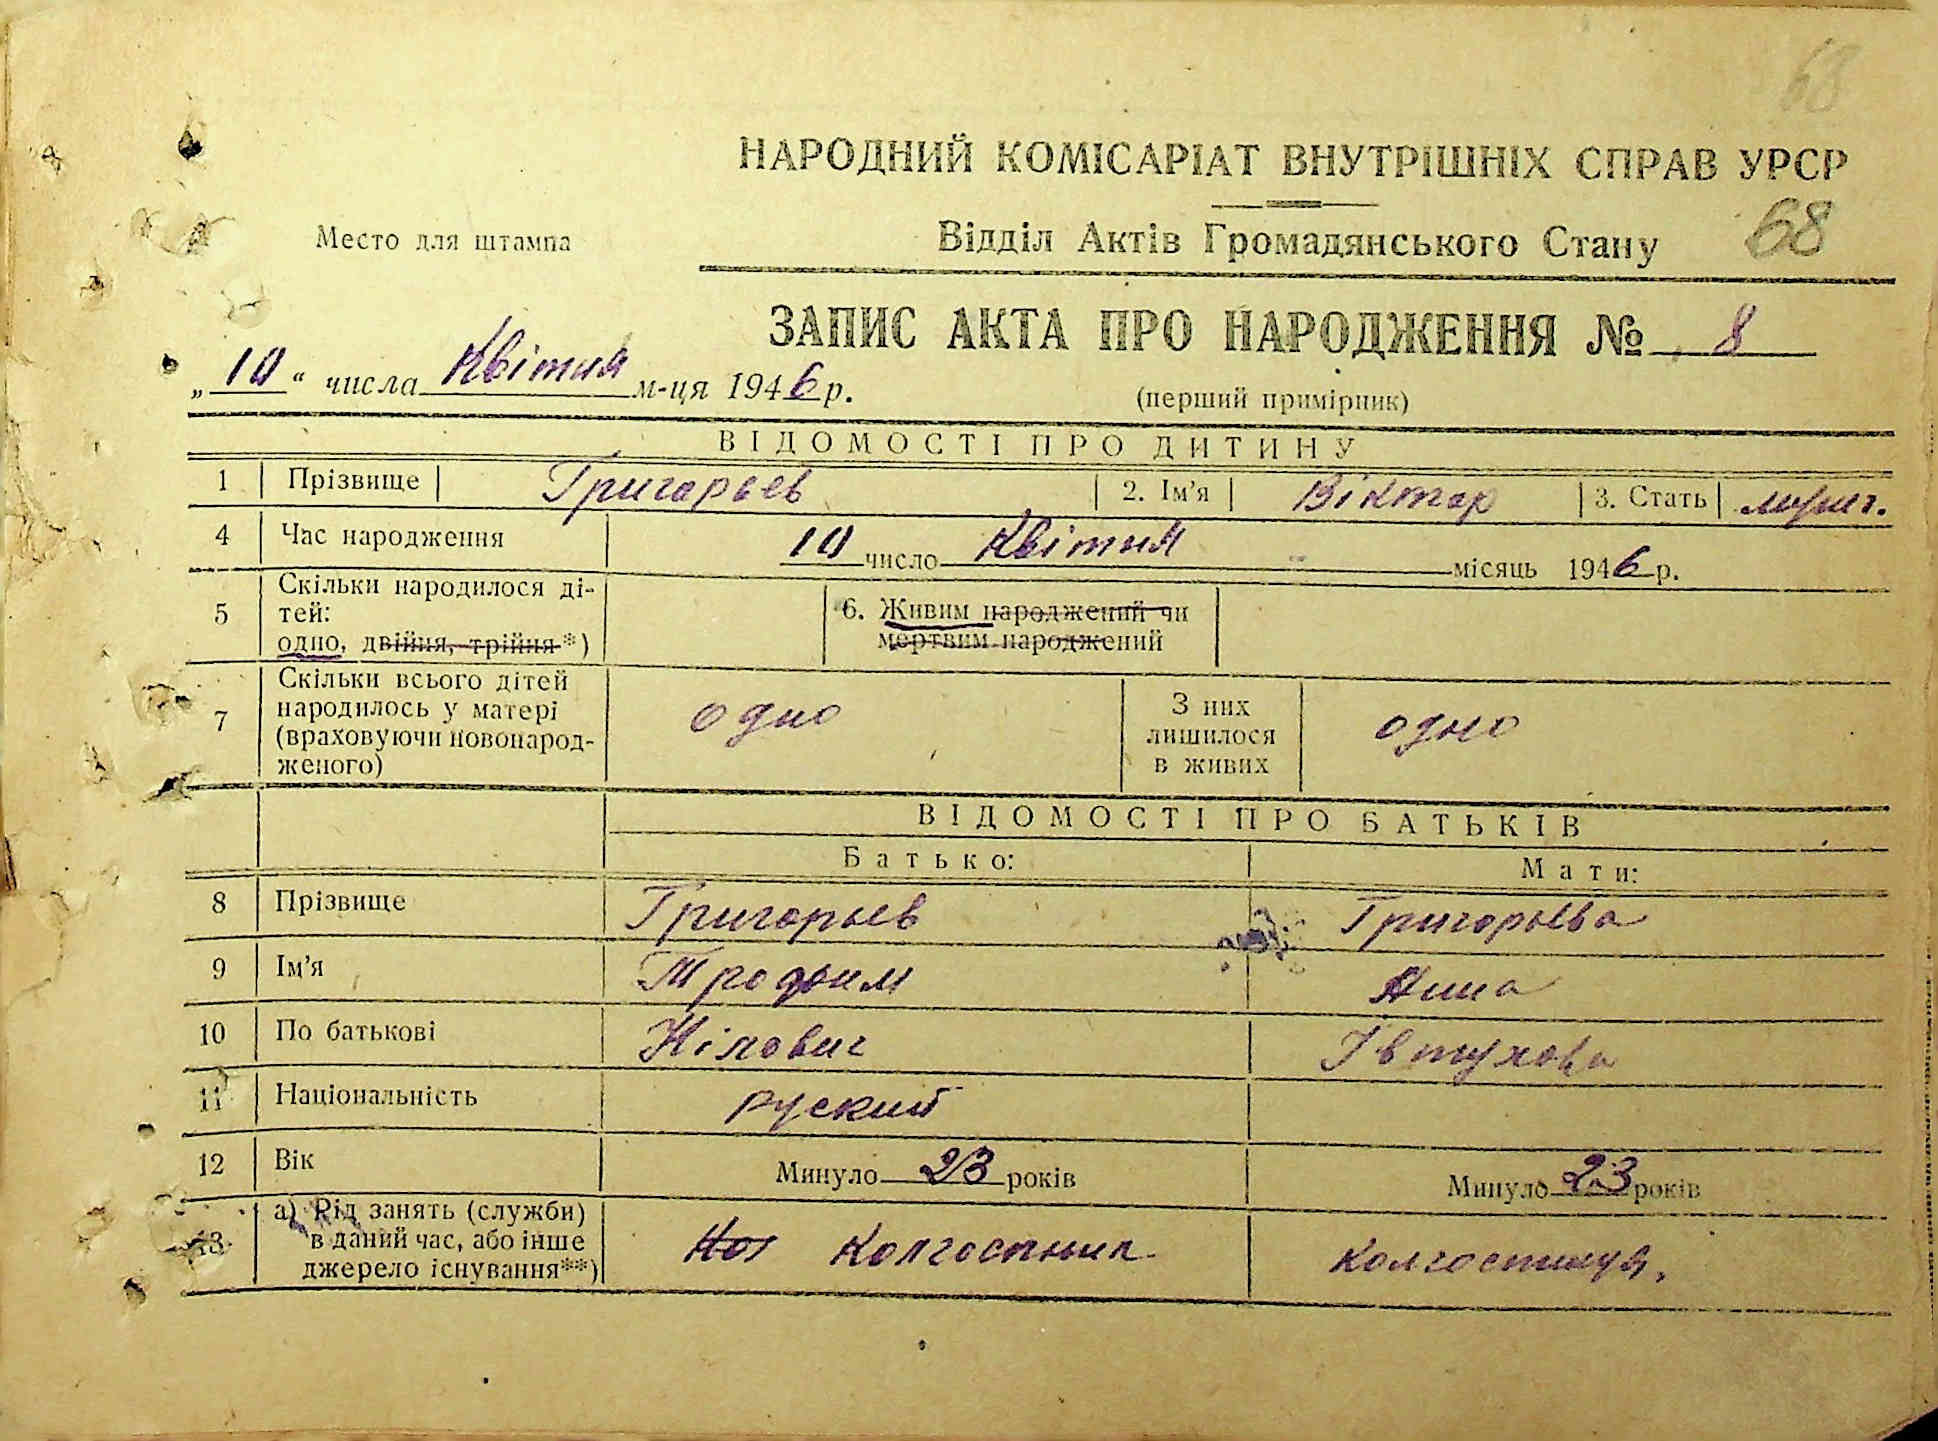 68
НАРОДНИЙ КОМІСАРІАТ ВНУТРІШНІХ СПРАВ УРСР
Место для штампа
Відділ Актів Громадянського Стану
68
ЗАПИС АКТА ПРО НАРОДЖЕННЯ № 8
„10“ числа Квітня м-ця 1946 р.
(перший примірник)
ВІДОМОСТІ ПРО ДИТИНУ
1 Прізвище Григорьев 2. Ім'я Віктор 3. Стать
4 Час народження 10 число Квітня місяць 1946 р.
5 Скільки народилося ді-
тей:
одно, двійня, трійня*)
6. Живим народжений чи
мертвим народжений
7 Скільки всього дітей
народилось у матері
(враховуючи новонарод-
женого)
одно
З них
лишилося
в живих
одно
ВІДОМОСТІ ПРО БАТЬКІВ
Батько: Мати:
8 Прізвище Григорьев Григорьева
9 Ім'я Трофим Нина
10 По батькові Нілович Івтухова
11 Національність руский
12 Вік Минуло 23 років Минуло 23 років
13 а) Рід занять (служби)
в даний час, або інше
джерело існування**)
Колгостник